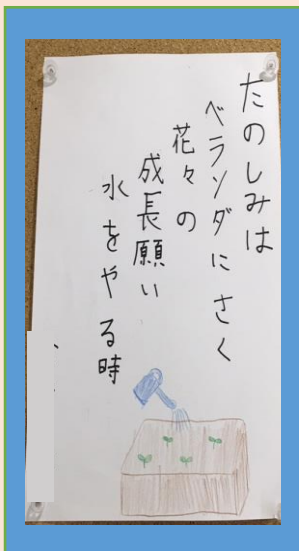 たのしみは
ベランダにさく
花々の
成長願い
水をやる時